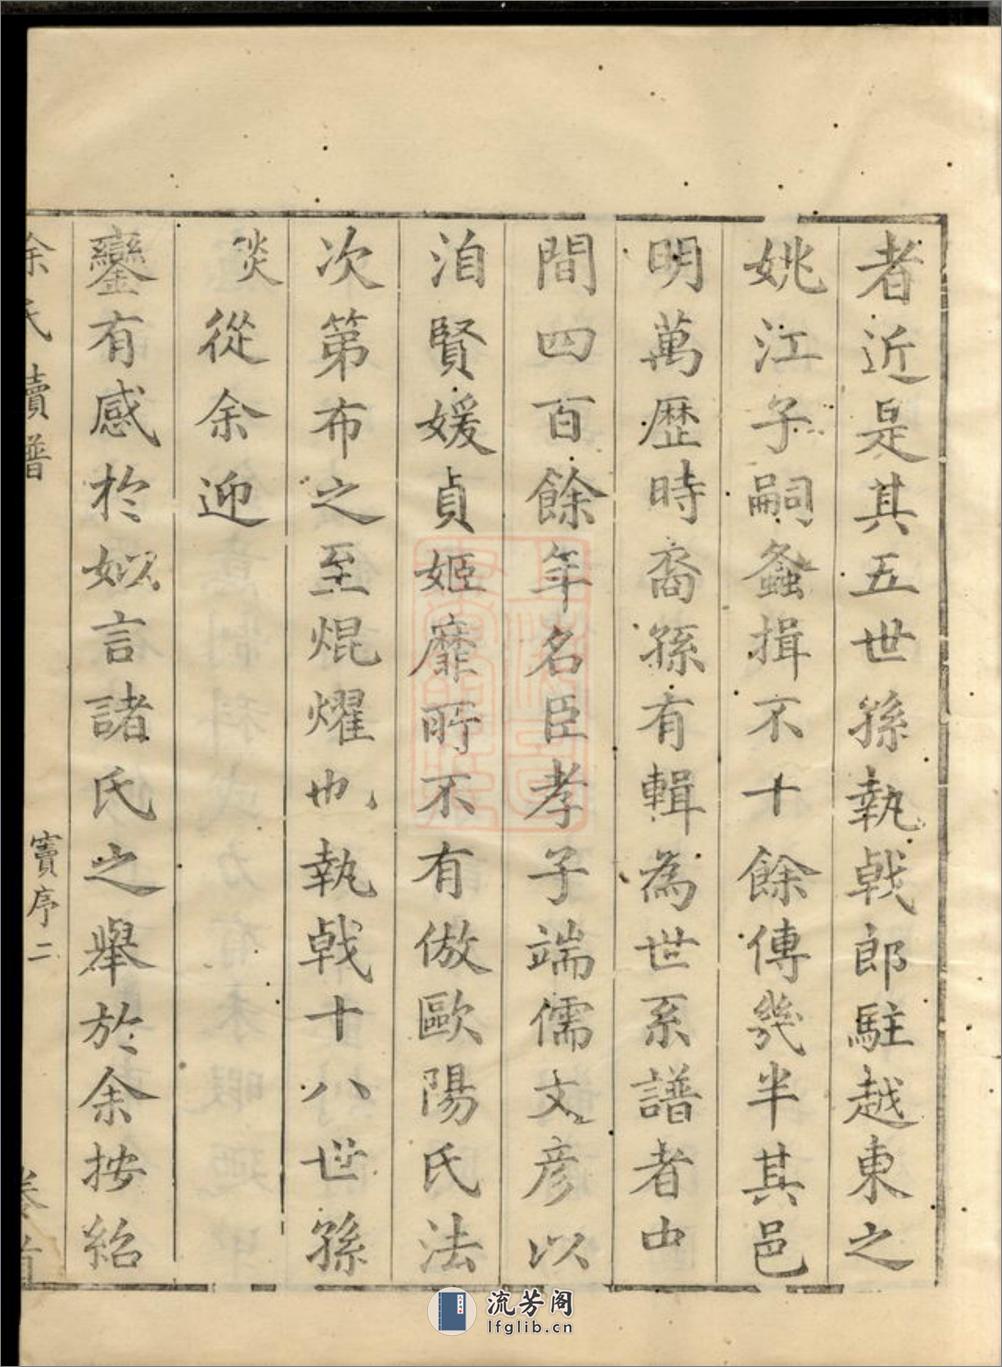 者近是其五世孫執戟郎駐越東之
姚江子嗣螽揖不十餘傳幾半其邑
明萬歷時裔孫有輯為世系譜者中
間四百餘年名臣孝子端儒文彥以
洎賢媛貞姬靡所不有倣歐陽氏法
次第布之至焜燿也執戟十八世孫
從余迎
鑾有感於姒言諸氏之舉於余按紹
余氏續譜
竇序二
卷首
流芳阁
lfglib.cn